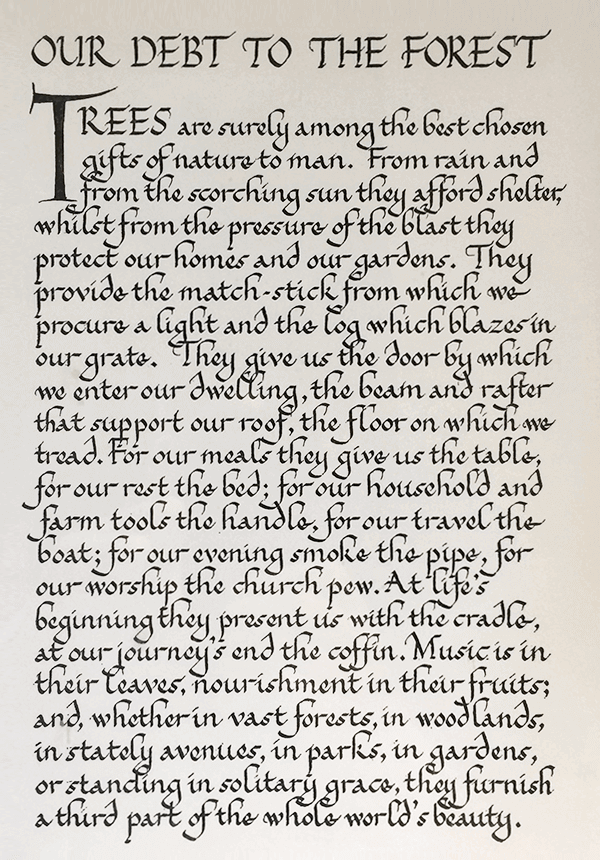 OUR DEBT TO THE FOREST
TREES are surely among the best chosen
gifts of nature to man. From rain and
from the scorching sun they afford shelter,
whilst from the pressure of the blast they
protect our homes and our gardens. They
provide the match-stick from which we
procure a light and the log which blazes in
our grate. They give us the door by which
we enter our dwelling, the beam and rafter
that support our roof, the floor on which we
tread. For our meals they give us the table,
for our rest the bed; for our household and
farm tools the handle, for our travel the
boat; for our evening smoke the pipe, for
our worship the church pew. At life's
beginning they present us with the cradle,
at our journey's end the coffin. Music is in
their leaves, nourishment in their fruits;
and, whether in vast forests, in woodlands,
in stately avenues, in parks, in gardens,
or standing in solitary grace, they furnish
a third part of the whole world's beauty.